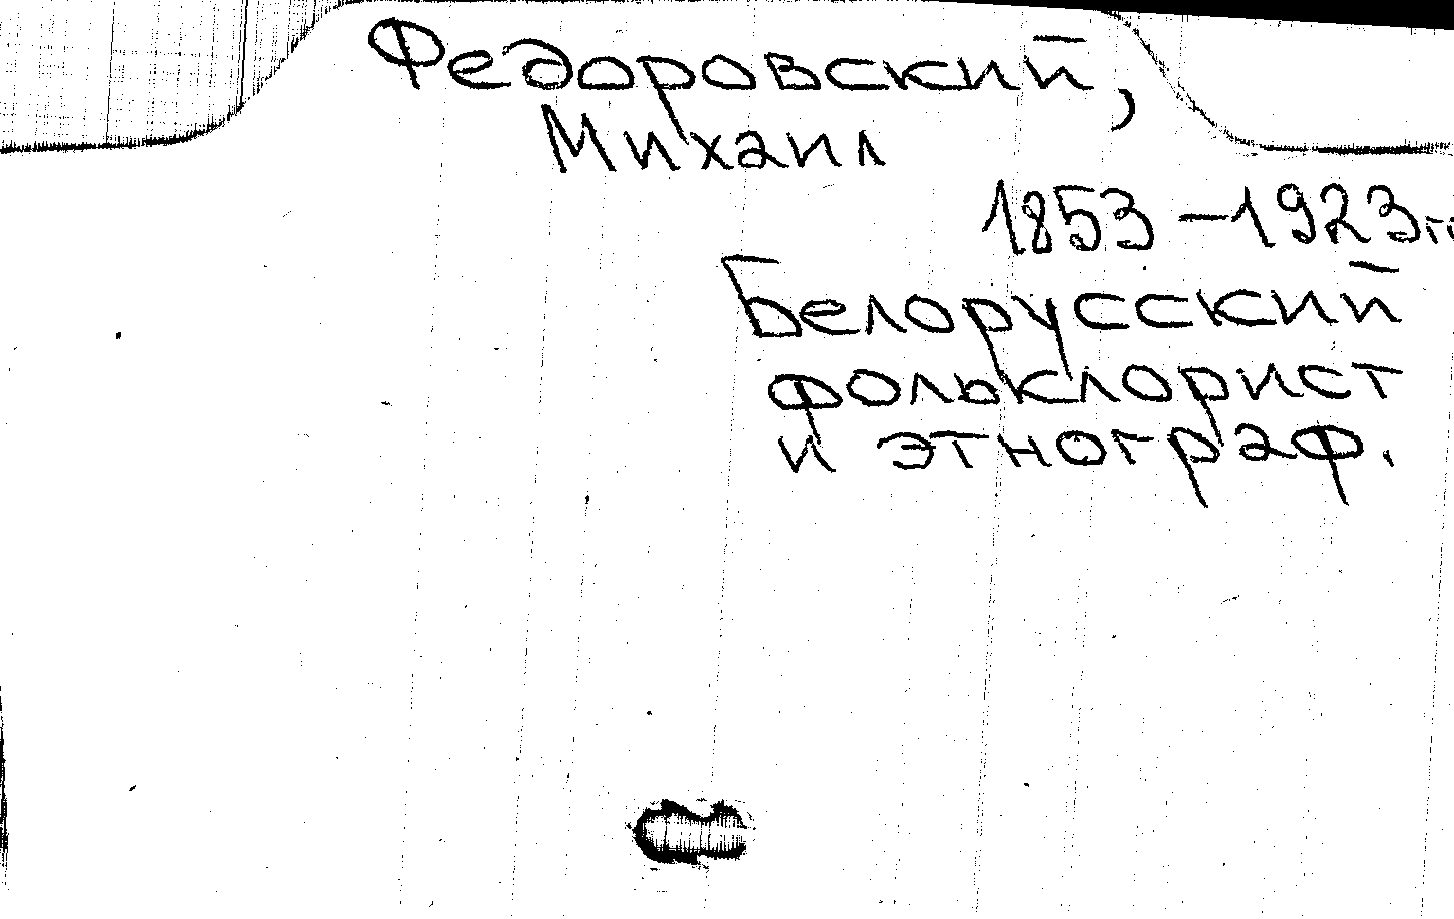 Федоровский,
Михаил
1853-1923гг
Белорусский
фольклорист
и этнограф.